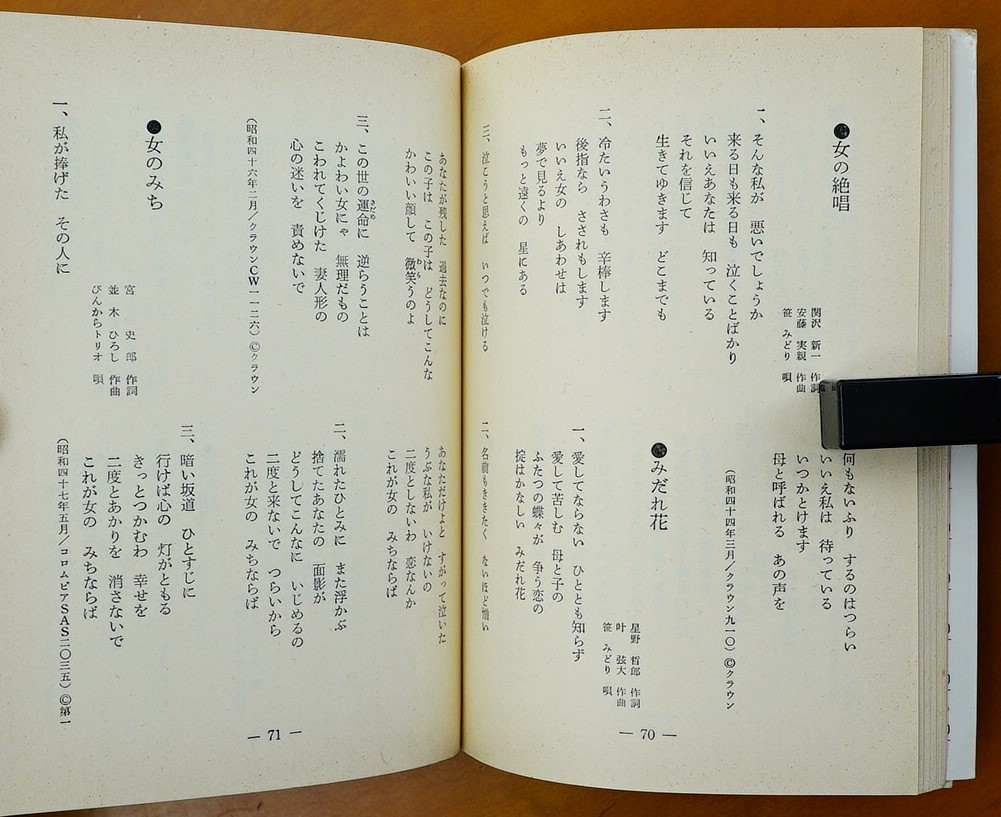 ●女の絶唱
関沢 新一 作詞
安藤 実親 作曲
笹 みどり 唄
一、そんな私が 悪いでしょうか
来る日も来る日も 泣くことばかり
いいえあなたは 知っている
それを信じて
生きてゆきます どこまでも
二、冷たいうわさも 辛棒します
後指なら さされもします
いいえ女の しあわせは
夢で見るより
もっと遠くの 星にある
三、泣こうと思えば いつでも泣ける
何もないふり するのはつらい
いいえ私は 待っている
いつかとけます
母と呼ばれる あの声を
(昭和四十四年三月/クラウン九一〇) ©クラウン
●みだれ花
星野 哲郎 作詞
叶 弦大 作曲
笹 みどり 唄
一、愛してならない ひととも知らず
愛して苦しむ 母と子の
ふたつの蝶々が 争う恋の
掟はかなしい みだれ花
二、名前もききたく ないほど憎い
— 70 —
あなたが残した 過去なのに
この子は この子は どうしてこんな
かわいい顔して 微笑うのよ
わら
三、この世の運命に 逆らうことは
さだめ
かよわい女にゃ 無理だもの
こわれてくじけた 妻人形の
心の迷いを 責めないで
(昭和四十六年二月/クラウンCW一一二六) ©クラウン
●女のみち
宮 史郎 作詞
並木 ひろし 作曲
ぴんからトリオ 唄
一、私が捧げた その人に
あなただけよと すがって泣いた
うぶな私が いけないの
二度としないわ 恋なんか
これが女の みちならば
二、濡れたひとみに また浮かぶ
捨てたあなたの 面影が
どうしてこんなに いじめるの
二度と来ないで つらいから
これが女の みちならば
三、暗い坂道 ひとすじに
行けば心の 灯がともる
きっとつかむわ 幸せを
二度とあかりを 消さないで
これが女の みちならば
(昭和四十七年五月/コロムビアSAS二〇三五) ©第一
— 71 —